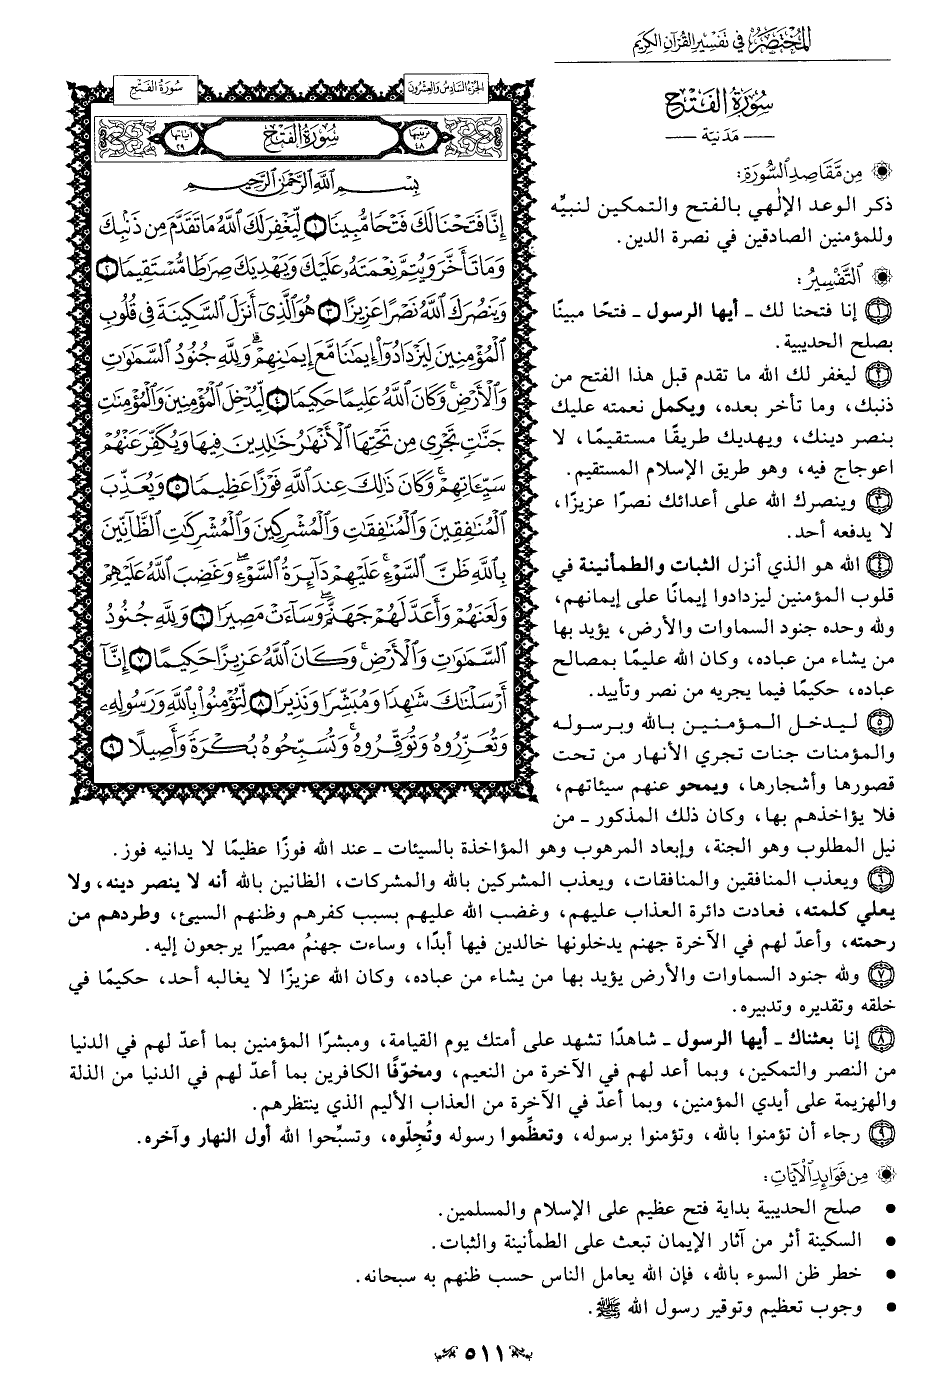 المختصر في تفسير القرآن الكريم
سورة الفتح
— مدنية —
من مقاصد السورة:
ذكر الوعد الإلٰهي بالفتح والتمكين لنبيِّه
وللمؤمنين الصادقين في نصرة الدين.
التفسير:
١ إنا فتحنا لك ـ أيها الرسول ـ فتحًا مبينًا
بصلح الحديبية.
٢ ليغفر لك الله ما تقدم قبل هذا الفتح من
ذنبك، وما تأخر بعده، ويكمل نعمته عليك
بنصر دينك، ويهديك طريقًا مستقيمًا، لا
اعوجاج فيه، وهو طريق الإسلام المستقيم.
٣ وينصرك الله على أعدائك نصرًا عزيزًا،
لا يدفعه أحد.
٤ الله هو الذي أنزل الثبات والطمأنينة في
قلوب المؤمنين ليزدادوا إيمانًا على إيمانهم،
ولله وحده جنود السماوات والأرض، يؤيد بها
من يشاء من عباده، وكان الله عليمًا بمصالح
عباده، حكيمًا فيما يجريه من نصر وتأييد.
٥ ليدخل المؤمنين بالله وبرسوله
والمؤمنات جنات تجري الأنهار من تحت
قصورها وأشجارها، ويمحو عنهم سيئاتهم،
فلا يؤاخذهم بها، وكان ذلك المذكور ـ من
نيل المطلوب وهو الجنة، وإبعاد المرهوب وهو المؤاخذة بالسيئات ـ عند الله فوزًا عظيمًا لا يدانيه فوز.
٦ ويعذب المنافقين والمنافقات، ويعذب المشركين بالله والمشركات، الظانين بالله أنه لا ينصر دينه، ولا
يعلي كلمته، فعادت دائرة العذاب عليهم، وغضب الله عليهم بسبب كفرهم وظنهم السيئ، وطردهم من
رحمته، وأعدّ لهم في الآخرة جهنم يدخلونها خالدين فيها أبدًا، وساءت جهنمُ مصيرًا يرجعون إليه.
٧ ولله جنود السماوات والأرض يؤيد بها من يشاء من عباده، وكان الله عزيزًا لا يغالبه أحد، حكيمًا في
خلقه وتقديره وتدبيره.
٨ إنا بعثناك ـ أيها الرسول ـ شاهدًا تشهد على أمتك يوم القيامة، ومبشرًا المؤمنين بما أعدّ لهم في الدنيا
من النصر والتمكين، وبما أعد لهم في الآخرة من النعيم، ومخوّفًا الكافرين بما أعدّ لهم في الدنيا من الذلة
والهزيمة على أيدي المؤمنين، وبما أعدّ في الآخرة من العذاب الأليم الذي ينتظرهم.
٩ رجاء أن تؤمنوا بالله، وتؤمنوا برسوله، وتعظِّموا رسوله وتُجِلّوه، وتسبِّحوا الله أول النهار وآخره.
من فوايد الآيات:
• صلح الحديبية بداية فتح عظيم على الإسلام والمسلمين.
• السكينة أثر من آثار الإيمان تبعث على الطمأنينة والثبات.
• خطر ظن السوء بالله، فإن الله يعامل الناس حسب ظنهم به سبحانه.
• وجوب تعظيم وتوقير رسول الله ﷺ.
الجزء السادس والعشرون
سورة الفتح
ترتيبها ٤٨
سورة الفتح
آياتها ٢٩
بِسْمِ ٱللَّهِ ٱلرَّحْمَٰنِ ٱلرَّحِيمِ
إِنَّا فَتَحْنَا لَكَ فَتْحًا مُّبِينًا ١ لِّيَغْفِرَ لَكَ ٱللَّهُ مَا تَقَدَّمَ مِن ذَنۢبِكَ
وَمَا تَأَخَّرَ وَيُتِمَّ نِعْمَتَهُۥ عَلَيْكَ وَيَهْدِيَكَ صِرَٰطًا مُّسْتَقِيمًا ٢
وَيَنصُرَكَ ٱللَّهُ نَصْرًا عَزِيزًا ٣ هُوَ ٱلَّذِىٓ أَنزَلَ ٱلسَّكِينَةَ فِى قُلُوبِ
ٱلْمُؤْمِنِينَ لِيَزْدَادُوٓا۟ إِيمَٰنًا مَّعَ إِيمَٰنِهِمْ ۗ وَلِلَّهِ جُنُودُ ٱلسَّمَٰوَٰتِ
وَٱلْأَرْضِ ۚ وَكَانَ ٱللَّهُ عَلِيمًا حَكِيمًا ٤ لِّيُدْخِلَ ٱلْمُؤْمِنِينَ وَٱلْمُؤْمِنَٰتِ
جَنَّٰتٍ تَجْرِى مِن تَحْتِهَا ٱلْأَنْهَٰرُ خَٰلِدِينَ فِيهَا وَيُكَفِّرَ عَنْهُمْ
سَيِّـَٔاتِهِمْ ۚ وَكَانَ ذَٰلِكَ عِندَ ٱللَّهِ فَوْزًا عَظِيمًا ٥ وَيُعَذِّبَ
ٱلْمُنَٰفِقِينَ وَٱلْمُنَٰفِقَٰتِ وَٱلْمُشْرِكِينَ وَٱلْمُشْرِكَٰتِ ٱلظَّآنِّينَ
بِٱللَّهِ ظَنَّ ٱلسَّوْءِ ۚ عَلَيْهِمْ دَآئِرَةُ ٱلسَّوْءِ ۖ وَغَضِبَ ٱللَّهُ عَلَيْهِمْ
وَلَعَنَهُمْ وَأَعَدَّ لَهُمْ جَهَنَّمَ ۖ وَسَآءَتْ مَصِيرًا ٦ وَلِلَّهِ جُنُودُ
ٱلسَّمَٰوَٰتِ وَٱلْأَرْضِ ۚ وَكَانَ ٱللَّهُ عَزِيزًا حَكِيمًا ٧ إِنَّآ
أَرْسَلْنَٰكَ شَٰهِدًا وَمُبَشِّرًا وَنَذِيرًا ٨ لِّتُؤْمِنُوا۟ بِٱللَّهِ وَرَسُولِهِۦ
وَتُعَزِّرُوهُ وَتُوَقِّرُوهُ ۚ وَتُسَبِّحُوهُ بُكْرَةً وَأَصِيلًا ٩
٥١١